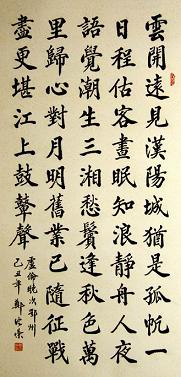 雲開遠見漢陽城猶是孤帆一
日程估客晝眠知浪靜舟人夜
語覺潮生三湘愁鬢逢秋色萬
里歸心對月明舊業已隨征戰
盡更堪江上鼓鼙聲
盧倫晚次鄂州
己丑年 鄭